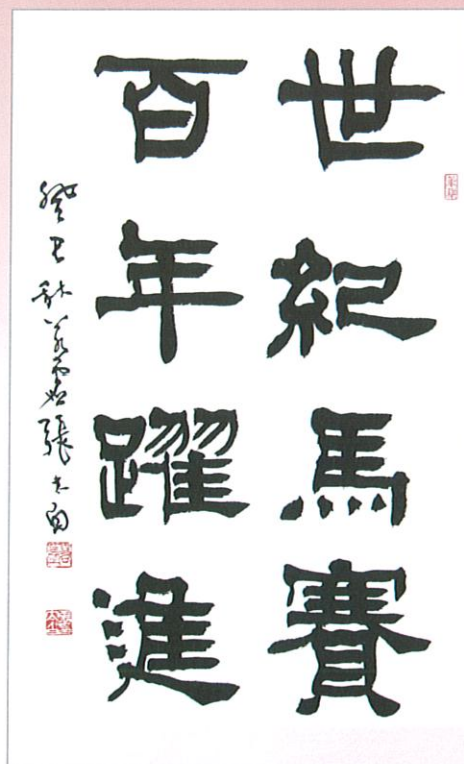 世紀馬賽
百年躍進
癸巳秋 張